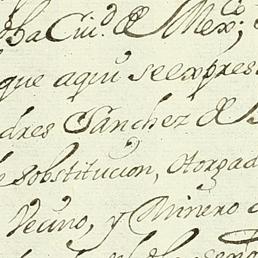 dha Ciu.d de Mex.co;
que aquí se expres
dres Sanchez de
sobstitucion, otorgad
Vecino, y Minero